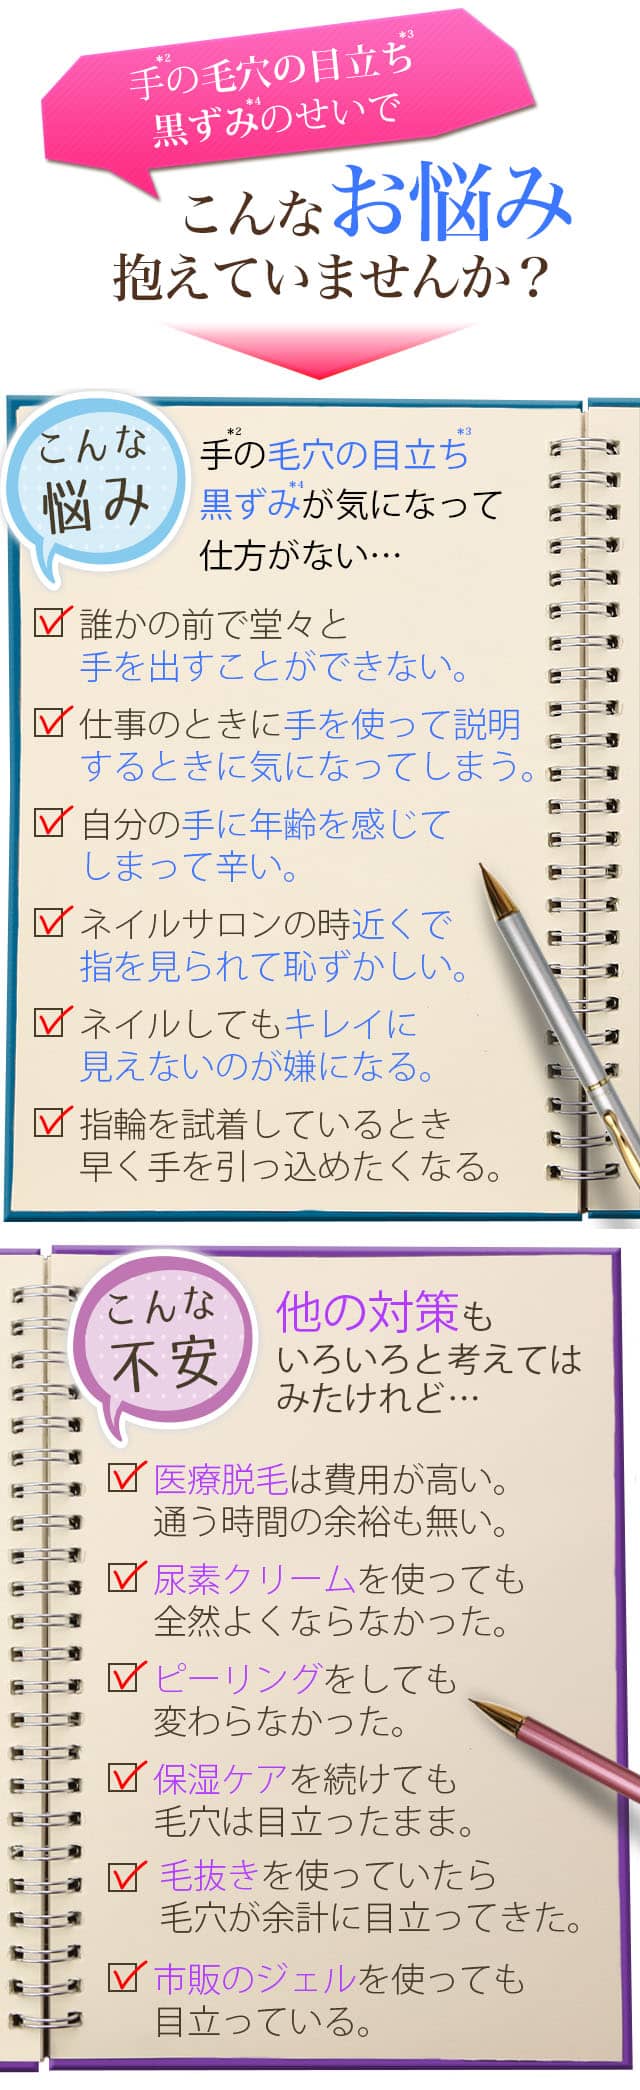 手*2の毛穴の目立ち*3
黒ずみ*4のせいで
こんなお悩み
抱えていませんか？
こんな
悩み
手*2の毛穴の目立ち*3
黒ずみ*4が気になって
仕方がない…
誰かの前で堂々と
手を出すことができない。
仕事のときに手を使って説明
するときに気になってしまう。
自分の手に年齢を感じて
しまって辛い。
ネイルサロンの時近くで
指を見られて恥ずかしい。
ネイルしてもキレイに
見えないのが嫌になる。
指輪を試着しているとき
早く手を引っ込めたくなる。
こんな
不安
他の対策も
いろいろと考えては
みたけれど…
医療脱毛は費用が高い。
通う時間の余裕も無い。
尿素クリームを使っても
全然よくならなかった。
ピーリングをしても
変わらなかった。
保湿ケアを続けても
毛穴は目立ったまま。
毛抜きを使っていたら
毛穴が余計に目立ってきた。
市販のジェルを使っても
目立っている。